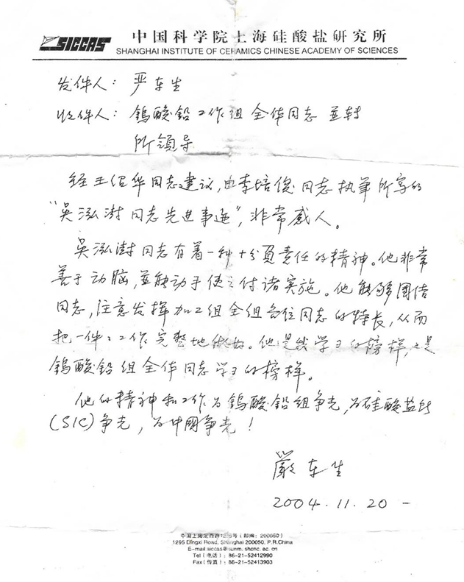 SICCAS
中国科学院上海硅酸盐研究所
SHANGHAI INSTITUTE OF CERAMICS CHINESE ACADEMY OF SCIENCES
发件人：严东生
收件人：鎢酸铅工作组全体同志並转
所领导
经王佢华同志建议，由李培俊同志执筆所写的
“吴泓澍同志先進事迹”，非常感人。
吴泓澍同志有着一种十分负责任的精神。他非常
善于动脑，並能动手使之付诸实施。他能够團结
同志，注意发挥加工组全组各位同志的特长，从而
把一件工作完整地做好。他是我学习的榜样，也是
鎢酸铅组全体同志学习的榜样。
他的精神和工作为鎢酸铅组争光，为硅酸盐所
(SIC)争光，为中國争光！
嚴东生
2004.11.20
中国上海定西路1295号（邮编：200050）
1295 Dingxi Road, Shanghai 200050, P.R.China
Tel（电话）：86-21-52412990
Fax（传真）：86-21-52413903